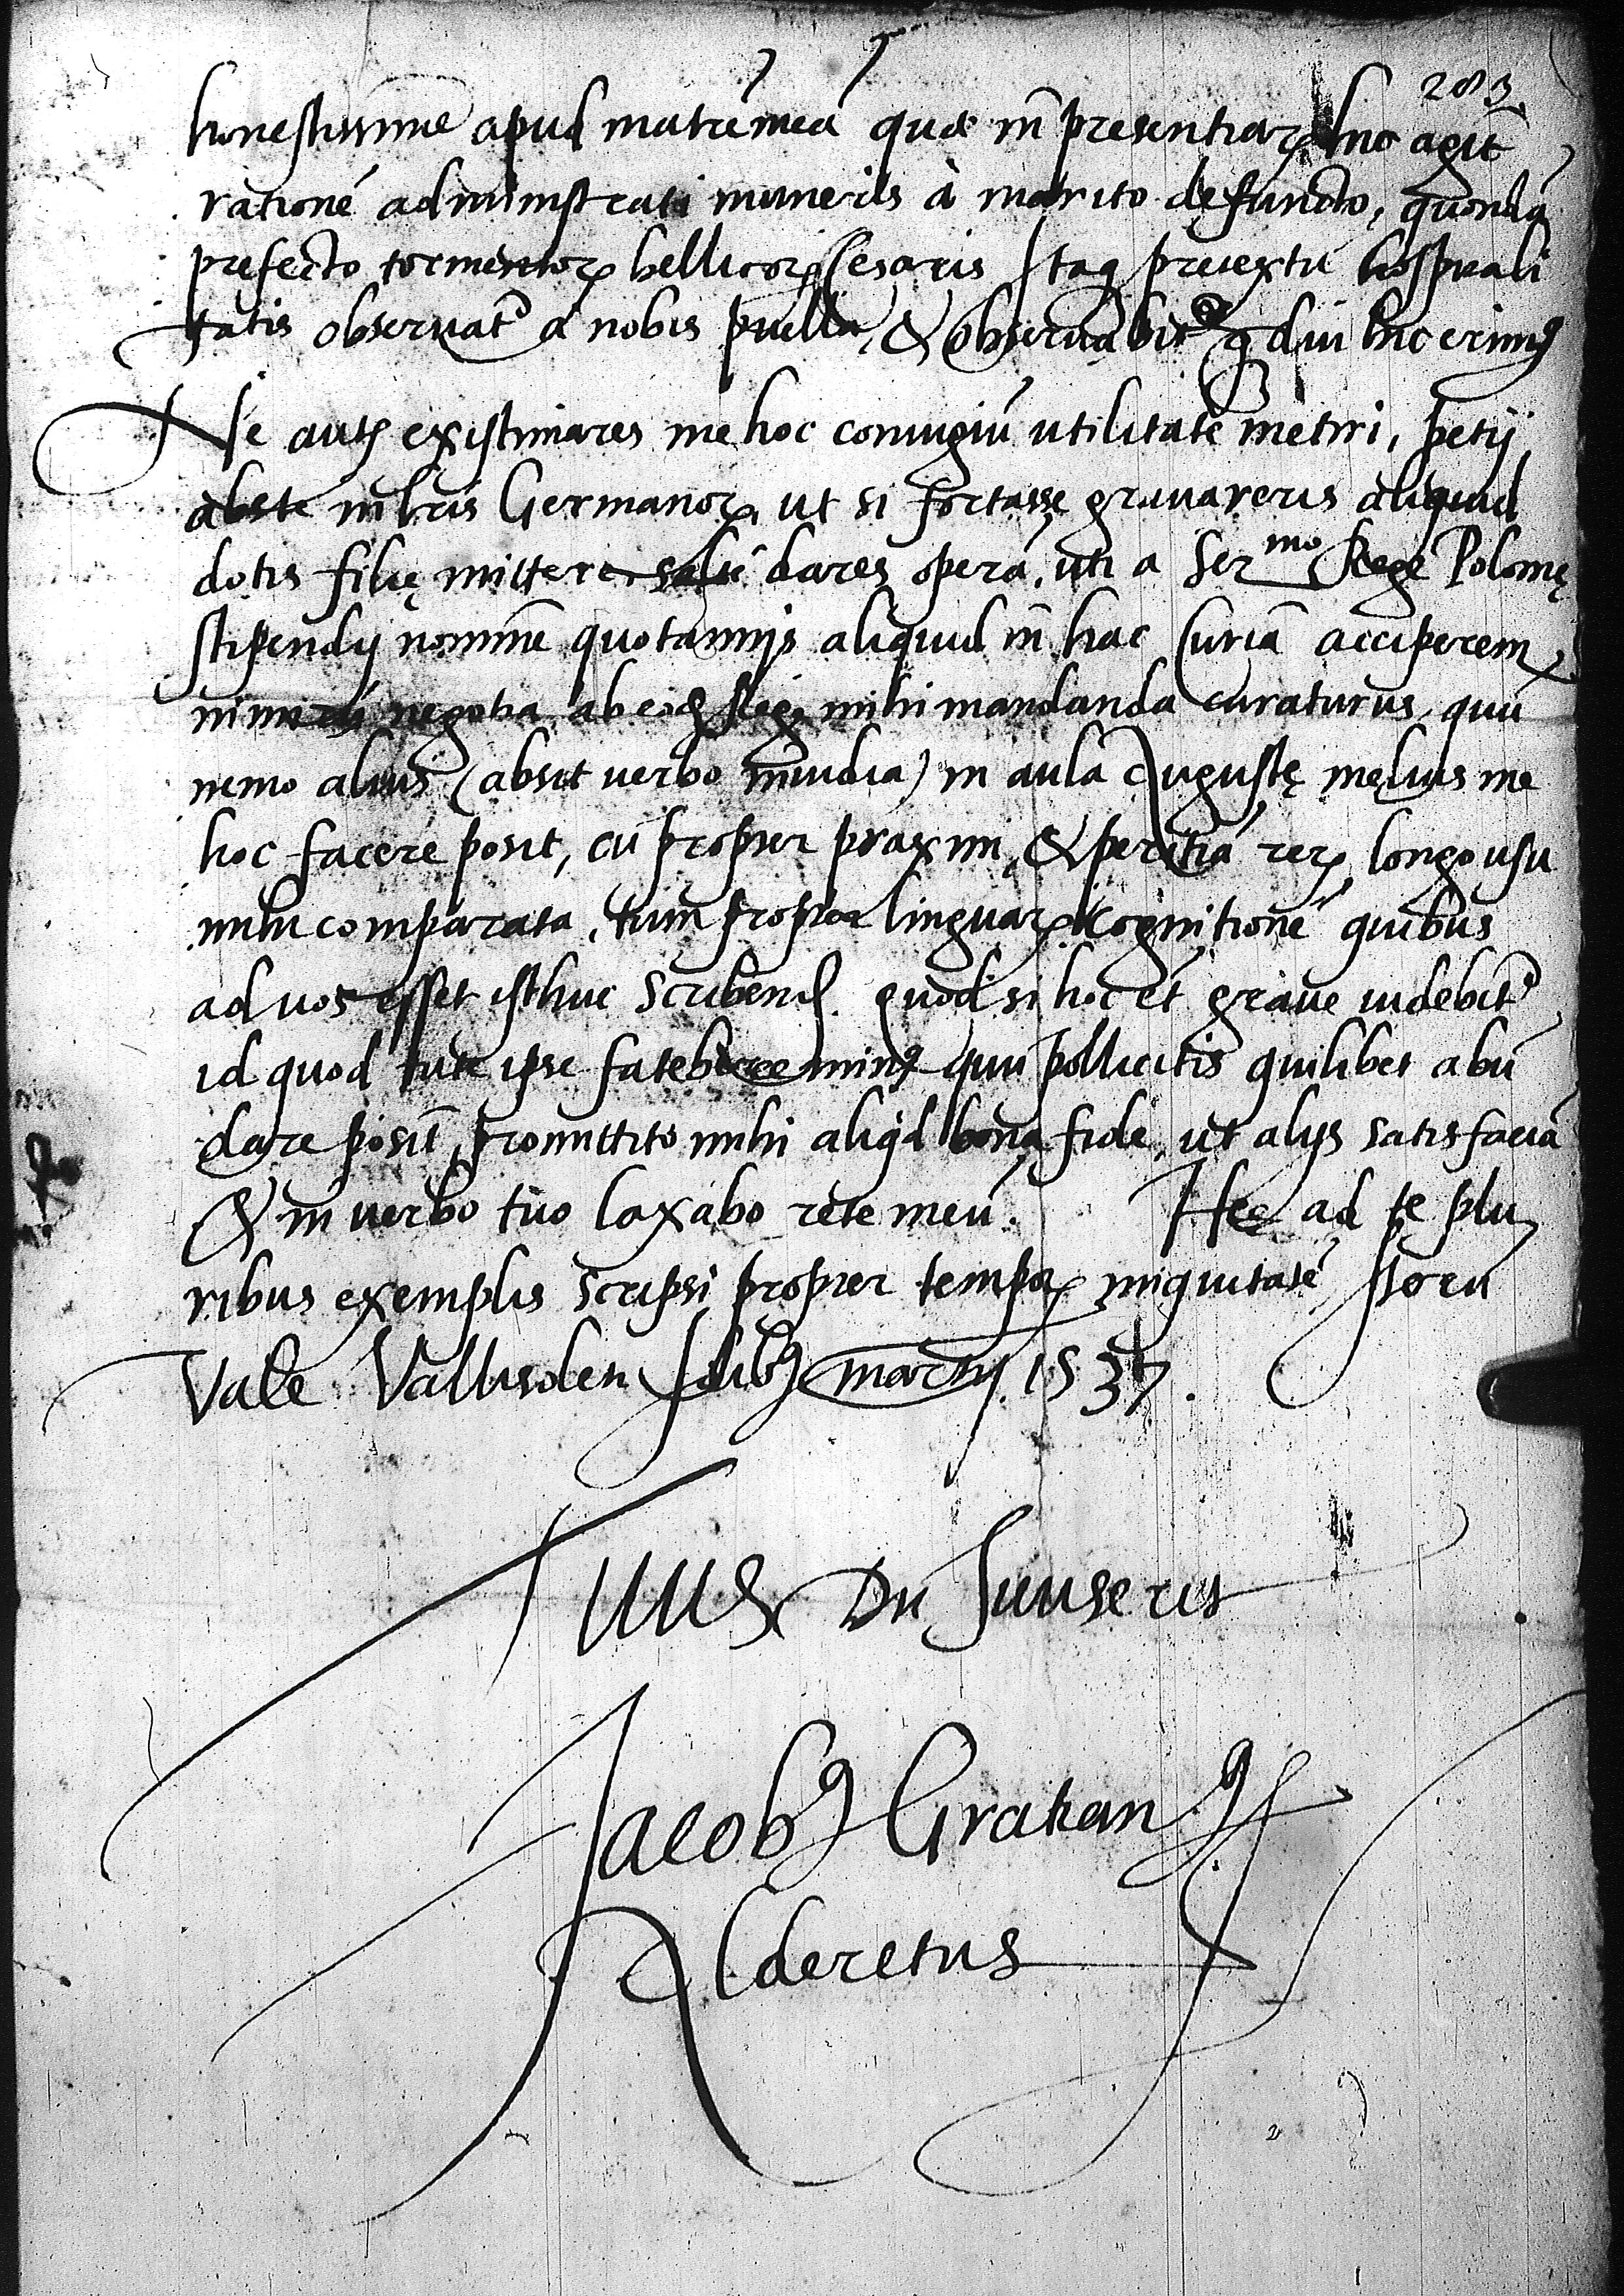 283
honestissime apud matrē meā quae in presentiarꝝ hic agit
rationē administrati muneris à marito defuncto, quondā
prefecto tormentorꝝ bellicorꝝ Cesaris Itaq pretextu hospitali
tatis observat᷑ a nobis puella, & observabit᷑ q diu hic erimꝰ
Ne autē existimares me hoc coniugiū utilitate metiri, petij
abste in lr̄is Germanorꝝ ut si fortasse gravareris aliquid
dotis filię mittere saltē dares operā, uti a Ser mo Rege Polonię
stipendij nomine quotannis aliquid in hac Curia acciperem
nimirū negotia ab eodē Rege mihi mandanda curaturus, quū
nemo alius (absit verbo invidia) in aula Augustę melius me
hoc facere posit, cū propter praxim, & peritiā rerꝝ longo usu
mihi comparata, tum propter linguarꝝ cognitionē quibus
ad vos esset isthuc scribendū. quod si hoc et grave videbit᷑
id quod tute ipse fatebere minꝰ quū pollicitis quilibet abū
dare posit, promittito mihi aliqd bona fide, ut alijs satisfaciā
& in verbo tuo laxabo rete meū. Hec ad te plu
ribus exemplis scripsi propter temporꝝ iniquitatē Iterū
Vale Vallisoleti Idibꝰ martij 1537.
Tuus Dū suus erit
Jacobꝰ Gratianꝰ
Alderetus